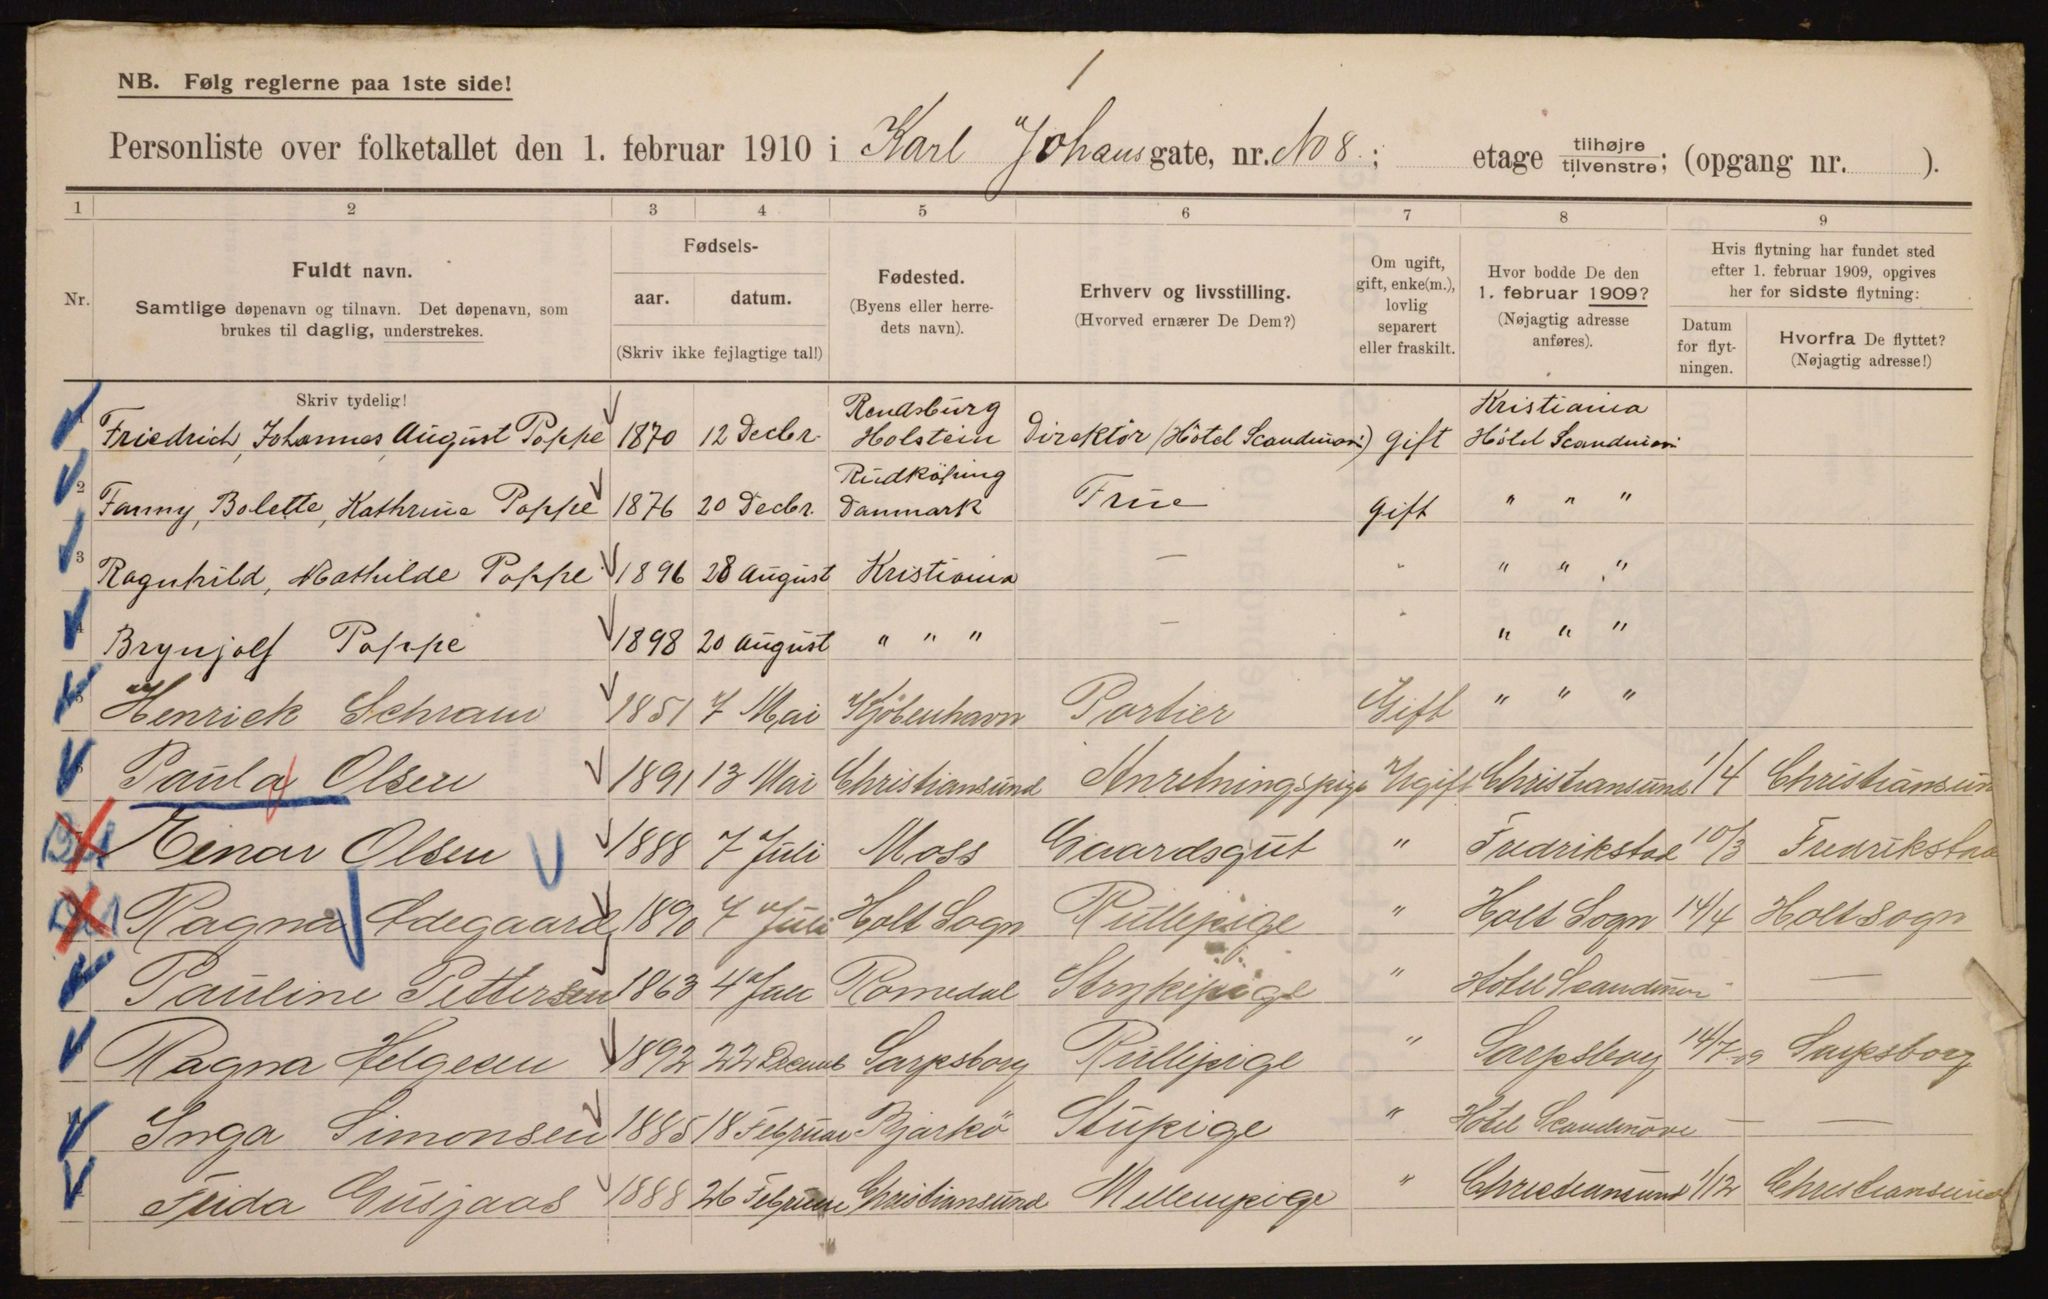 1
NB. Følg reglerne paa 1ste side!
Personliste over folketallet den 1. februar 1910 i Karl Johans gate, nr. No 8 ; etage tilhøjre tilvenstre; (opgang nr. ).
1 2 3 4 5 6 7 8 9
Nr.
Fuldt navn.
Samtlige døpenavn og tilnavn. Det døpenavn, som
brukes til daglig, understrekes.
Fødsels-
aar. datum.
(Skriv ikke fejlagtige tal!)
Fødested.
(Byens eller herre-
dets navn).
Erhverv og livsstilling.
(Hvorved ernærer De Dem?)
Om ugift,
gift, enke(m.),
lovlig
separert
eller fraskilt.
Hvor bodde De den
1. februar 1909?
(Nøjagtig adresse
anføres).
Hvis flytning har fundet sted
efter 1. februar 1909, opgives
her for sidste flytning:
Datum
for flyt-
ningen.
Hvorfra De flyttet?
(Nøjagtig adresse!)
Skriv tydelig!
Rendsburg Kristiania
1 Friedrich, Johannes August Poppe 1870 12 Decbr. Holstein Direktör (Hôtel Scandinavi) gift Hôtel Scandinavi
Rudköping
2 Fanny, Bolette, Kathrine Poppe 1876 20 Decbr. Danmark Frue gift " " "
3 Ragnhild, Mathilde Poppe 1896 28 August Kristiania — " " " "
4 Brynjolf Poppe 1898 20 August " " " — " " " "
5 Henrick Schram 1851 7 Mai Kjöbenhavn Portier Gift " " "
6 Paula Olsen 1891 13 Mai Christiansund Anretningspige Ugift Christiansund 1/4 Christiansun
Einar Olsen 1888 7 Juli Moss Gaardsgut " Fredrikstad 10/3 Fredrikstad
Ragna Ødegaard 1890 7 Juli Holt Sogn Rullepige " Holt Sogn 14/4 Holt Sogn
Pauline Pettersen 1863 4 Jan Romedal Strykepige " Hôtel Scandinavi —
Ragna Helgesen 1892 22 Decemb Sarpsborg Rullepige " Sarpsborg 14/7-09 Sarpsborg
Inga Simonsen 1885 18 Februar Bjarkö Stupige " Hôtel Scandinavi — —
Frida Gusjaas 1888 26 Februar Christiansund Mellempige " Christiansund 1/12 Christiansund